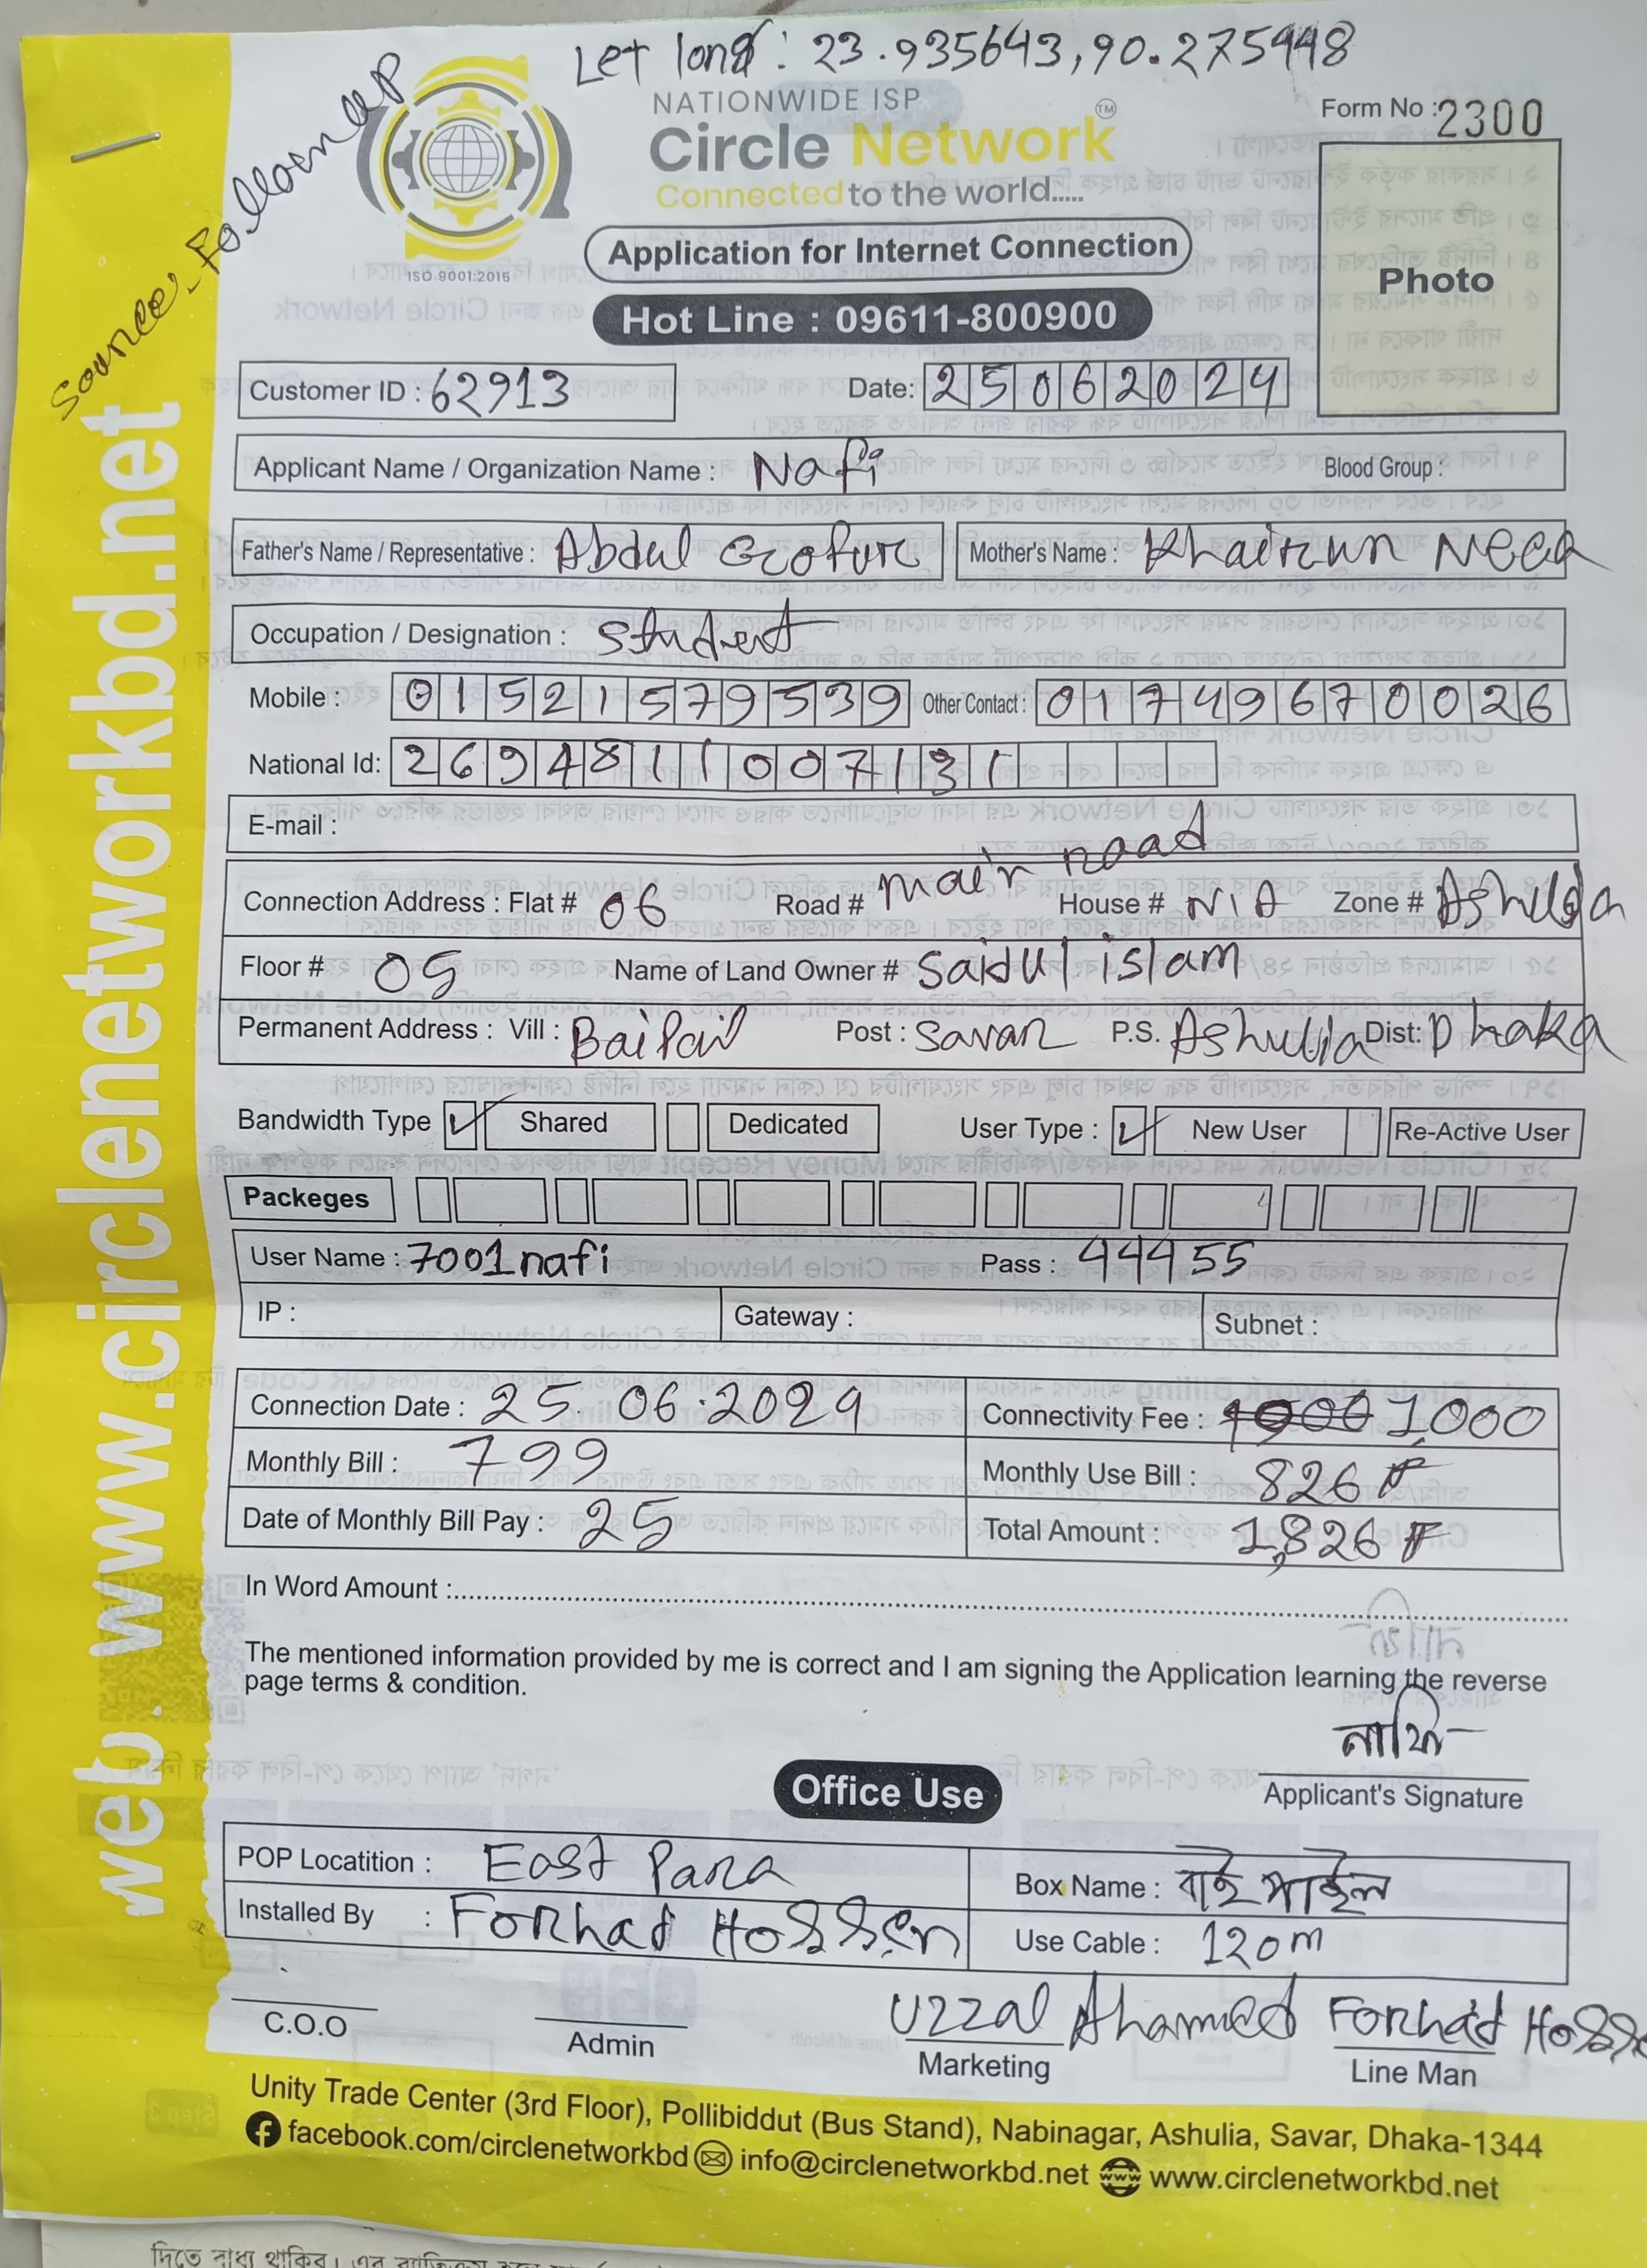 Let long: 23.935643,90.275448
Source, Followup
NATIONWIDE ISP
Circle Network TM
Connected to the world.....
ISO 9001:2015
Form No : 2300
Application for Internet Connection
Photo
Hot Line : 09611-800900
Customer ID : 62913 Date: 25062024
Applicant Name / Organization Name : Nafi Blood Group :
Father's Name / Representative : Abdul Gofur Mother's Name : Khairun Neca
Occupation / Designation : Student
Mobile : 01521579539 Other Contact : 01749670026
National Id: 2694811007131
E-mail :
Connection Address : Flat # 06 Road # main road House # N/A Zone # Ashulia
Floor # 05 Name of Land Owner # Saidul islam
Permanent Address : Vill : Baipail Post : Savar P.S. Ashulia Dist: Dhaka
Bandwidth Type Shared Dedicated User Type : New User Re-Active User
Packeges
User Name : 7001nafi Pass : 44455
IP : Gateway : Subnet :
Connection Date : 25.06.2024 Connectivity Fee : 1,000
Monthly Bill : 799 Monthly Use Bill : 826
Date of Monthly Bill Pay : 25 Total Amount : 1,826
In Word Amount :
The mentioned information provided by me is correct and I am signing the Application learning the reverse
page terms & condition.
নাফি
Applicant's Signature
Office Use
POP Locatition : East Para Box Name : বাইপাইল
Installed By : Forhad Hossen Use Cable : 120m
Uzzal Ahamed Forhad Hosse
C.O.O Admin Marketing Line Man
Unity Trade Center (3rd Floor), Pollibiddut (Bus Stand), Nabinagar, Ashulia, Savar, Dhaka-1344
facebook.com/circlenetworkbd info@circlenetworkbd.net www.circlenetworkbd.net
web: www.circlenetworkbd.net
দিতে বাধ্য থাকিব।